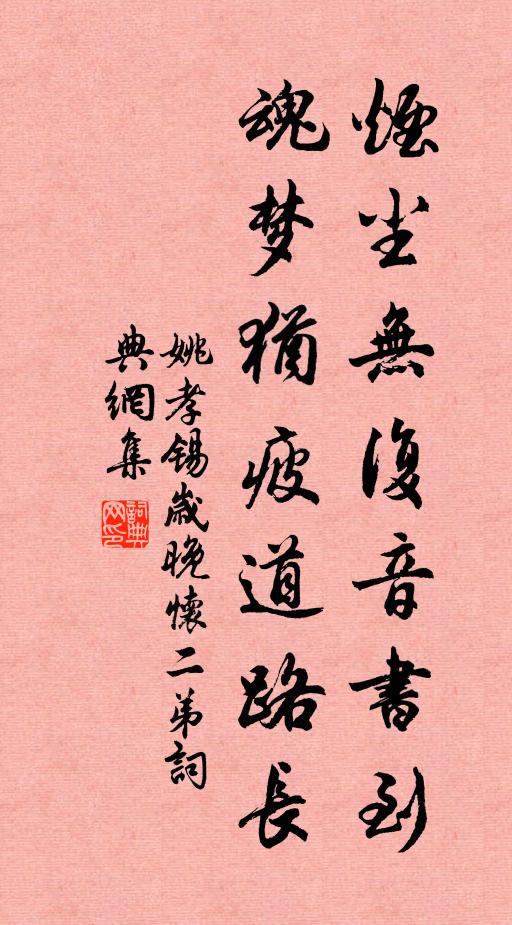 煙尘無復音書到
魂梦猶疲道路長
姚孝锡歲晚懷二弟詞
典網集
詞典
网印